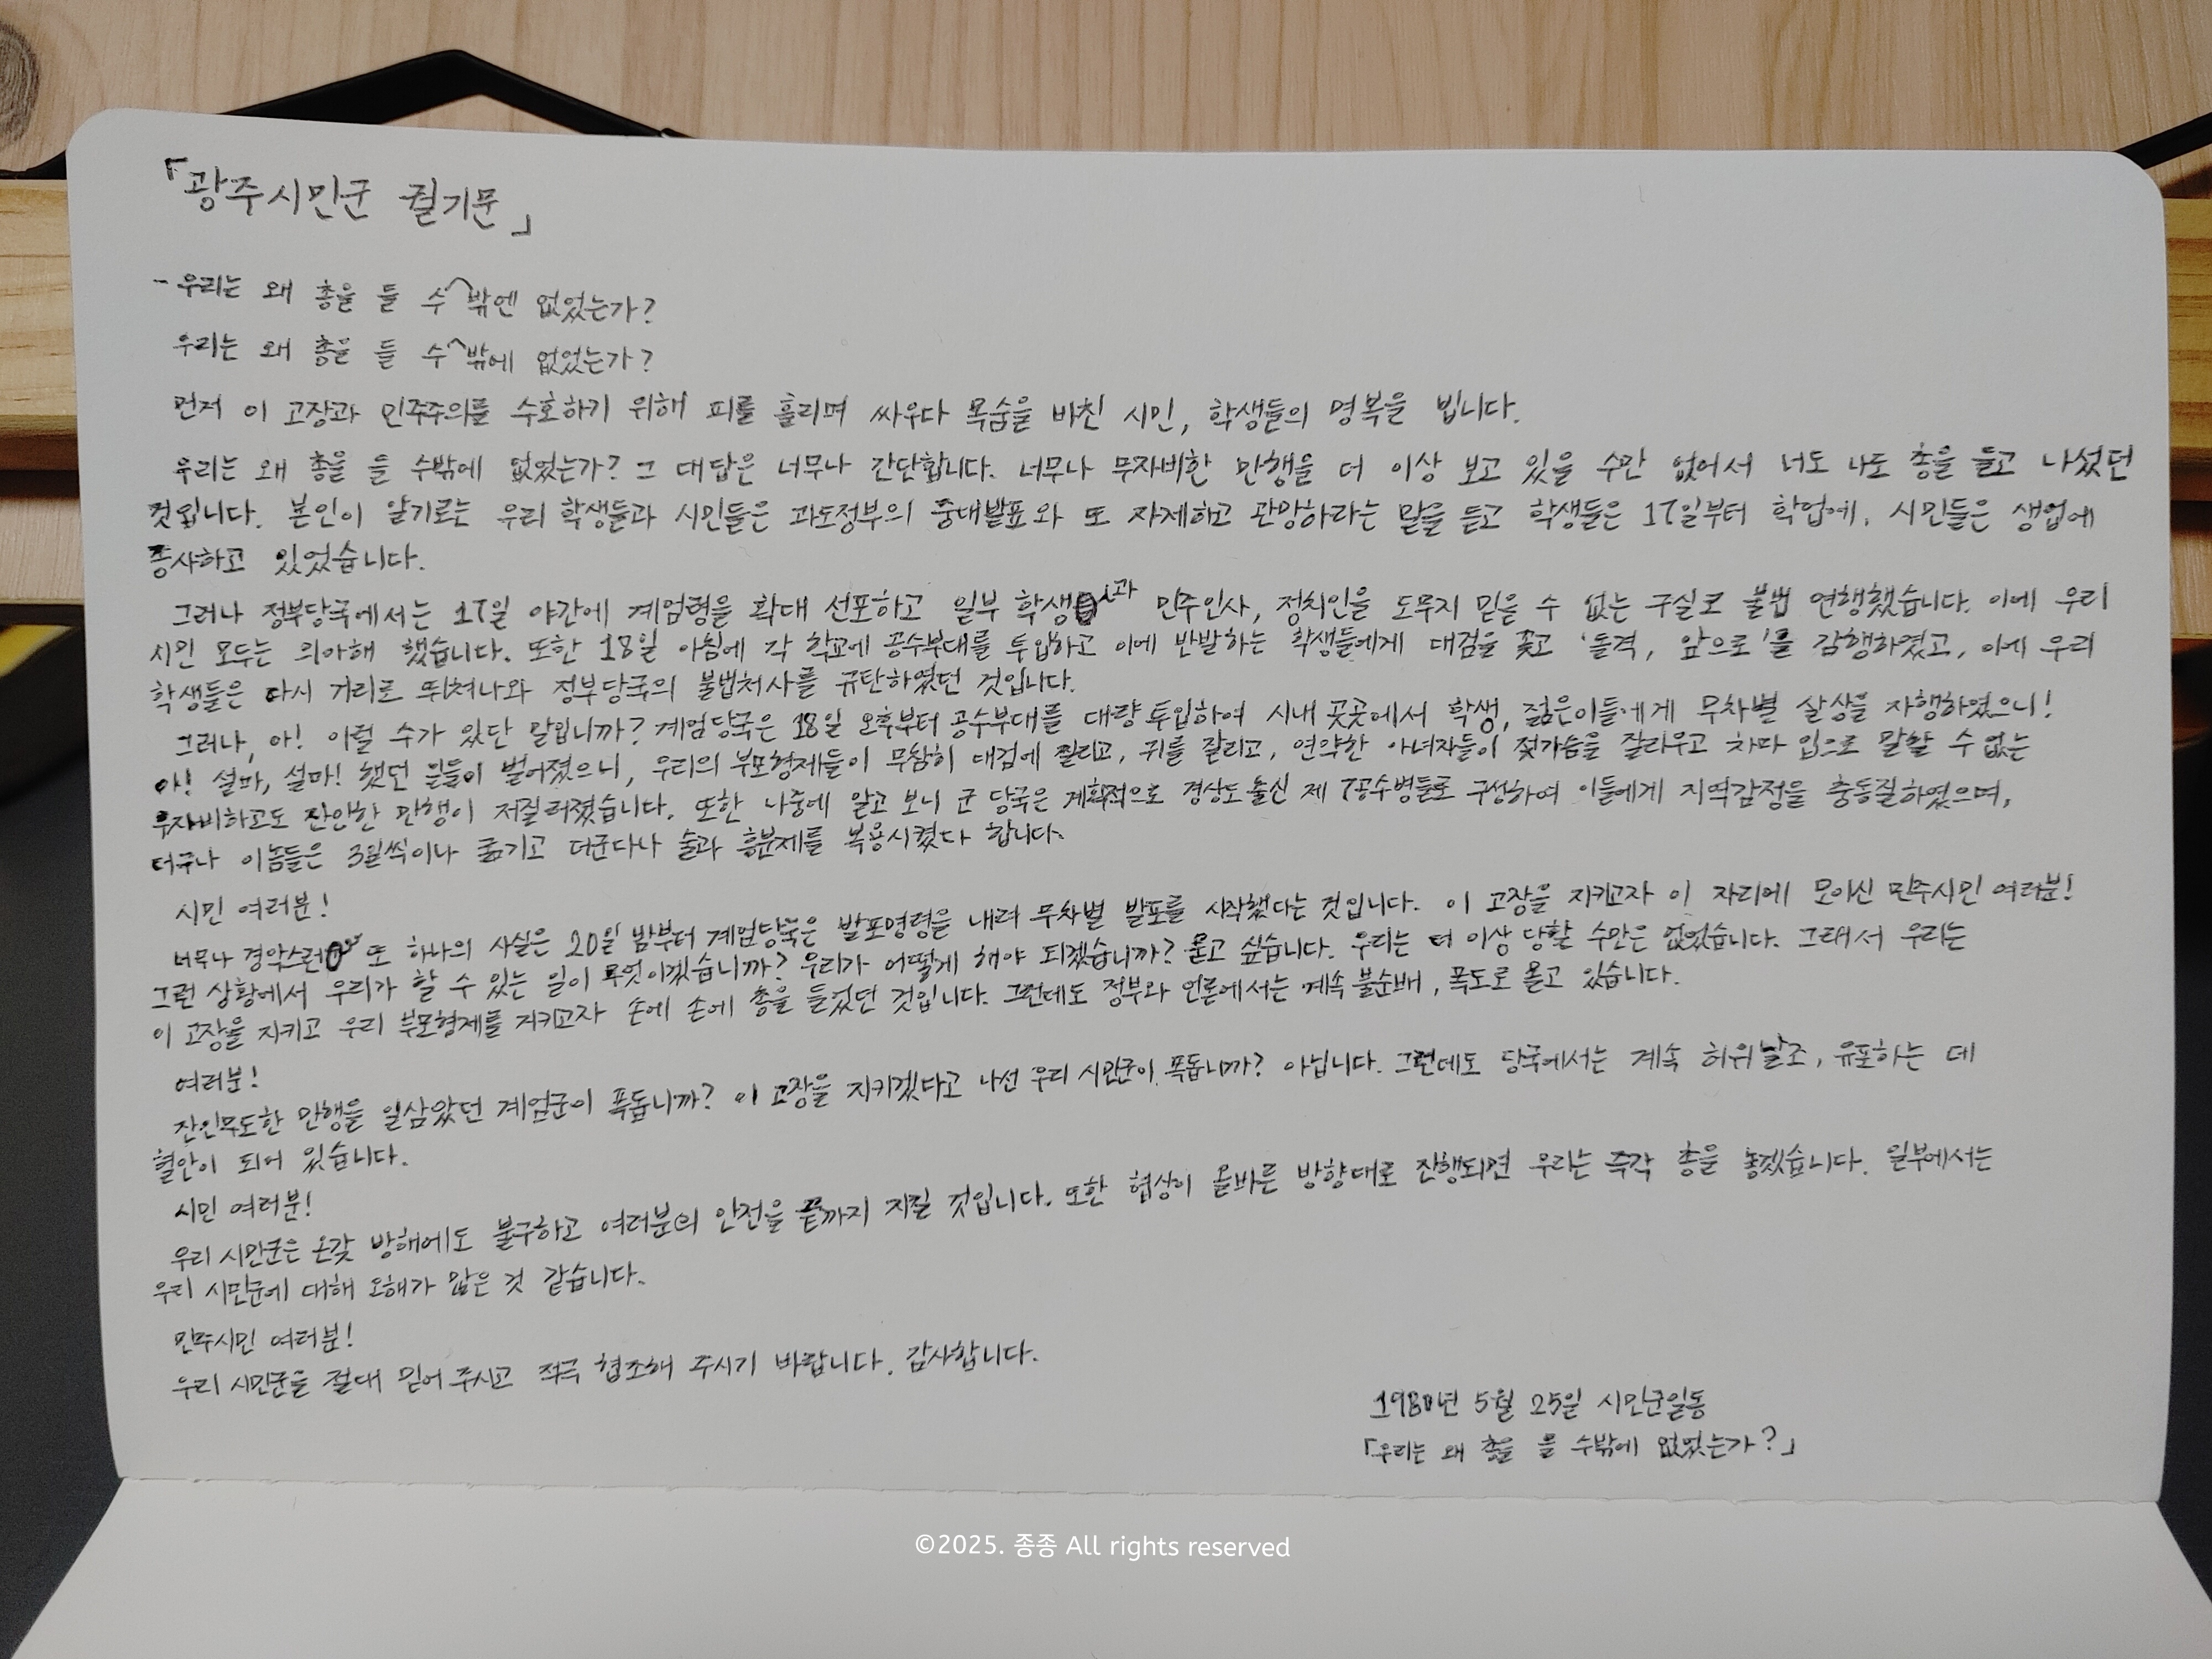 「광주시민군 궐기문」
- 우리는 왜 총을 들 수^밖엔 없었는가?
우리는 왜 총을 들 수^밖에 없었는가?
먼저 이 고장과 민주주의를 수호하기 위해 피를 흘리며 싸우다 목숨을 바친 시민, 학생들의 명복을 빕니다.
우리는 왜 총을 들 수밖에 없었는가? 그 대답은 너무나 간단합니다. 너무나 무자비한 만행을 더 이상 보고 있을 수만 없어서 너도 나도 총을 들고 나섰던
것입니다. 본인이 알기로는 우리 학생들과 시민들은 과도정부의 중대발표와 또 자제하고 관망하라는 말을 듣고 학생들은 17일부터 학업에, 시민들은 생업에
종사하고 있었습니다.
그러나 정부당국에서는 17일 야간에 계엄령을 확대 선포하고 일부 학생과 민주인사, 정치인을 도무지 믿을 수 없는 구실로 불법 연행했습니다. 이에 우리
시민 모두는 의아해 했습니다. 또한 18일 아침에 각 학교에 공수부대를 투입하고 이에 반발하는 학생들에게 대검을 꽂고 '돌격, 앞으로'를 감행하였고, 이에 우리
학생들은 다시 거리로 뛰쳐나와 정부당국의 불법처사를 규탄하였던 것입니다.
그러나, 아! 이럴 수가 있단 말입니까? 계엄당국은 18일 오후부터 공수부대를 대량 투입하여 시내 곳곳에서 학생, 젊은이들에게 무차별 살상을 자행하였으니!
아! 설마, 설마! 했던 일들이 벌어졌으니, 우리의 부모형제들이 무참히 대검에 찔리고, 귀를 잘리고, 연약한 아녀자들이 젖가슴을 잘리우고 차마 입으로 말할 수 없는
무자비하고도 잔인한 만행이 저질러졌습니다. 또한 나중에 알고 보니 군 당국은 계획적으로 경상도 출신 제 7공수병들로 구성하여 이들에게 지역감정을 충동질하였으며,
더구나 이놈들은 3일씩이나 굶기고 더군다나 술과 흥분제를 복용시켰다 합니다.
시민 여러분!
너무나 경악스런 또 하나의 사실은 20일 밤부터 계엄당국은 발포명령을 내려 무차별 발포를 시작했다는 것입니다. 이 고장을 지키고자 이 자리에 모이신 민주시민 여러분!
그런 상황에서 우리가 할 수 있는 일이 무엇이겠습니까? 우리가 어떻게 해야 되겠습니까? 묻고 싶습니다. 우리는 더 이상 당할 수만은 없었습니다. 그래서 우리는
이 고장을 지키고 우리 부모형제를 지키고자 손에 손에 총을 들었던 것입니다. 그런데도 정부와 언론에서는 계속 불순배, 폭도로 몰고 있습니다.
여러분!
잔인무도한 만행을 일삼았던 계엄군이 폭돕니까? 이 고장을 지키겠다고 나선 우리 시민군이 폭돕니까? 아닙니다. 그런데도 당국에서는 계속 허위날조, 유포하는 데
혈안이 되어 있습니다.
시민 여러분!
우리 시민군은 온갖 방해에도 불구하고 여러분의 안전을 끝까지 지킬 것입니다. 또한 협상이 올바른 방향대로 진행되면 우리는 즉각 총을 놓겠습니다. 일부에서는
우리 시민군에 대해 오해가 많은 것 같습니다.
민주시민 여러분!
우리 시민군을 절대 믿어 주시고 적극 협조해 주시기 바랍니다. 감사합니다.
1980년 5월 25일 시민군일동
「우리는 왜 총을 들 수밖에 없었는가?」
©2025. 종종 All rights reserved